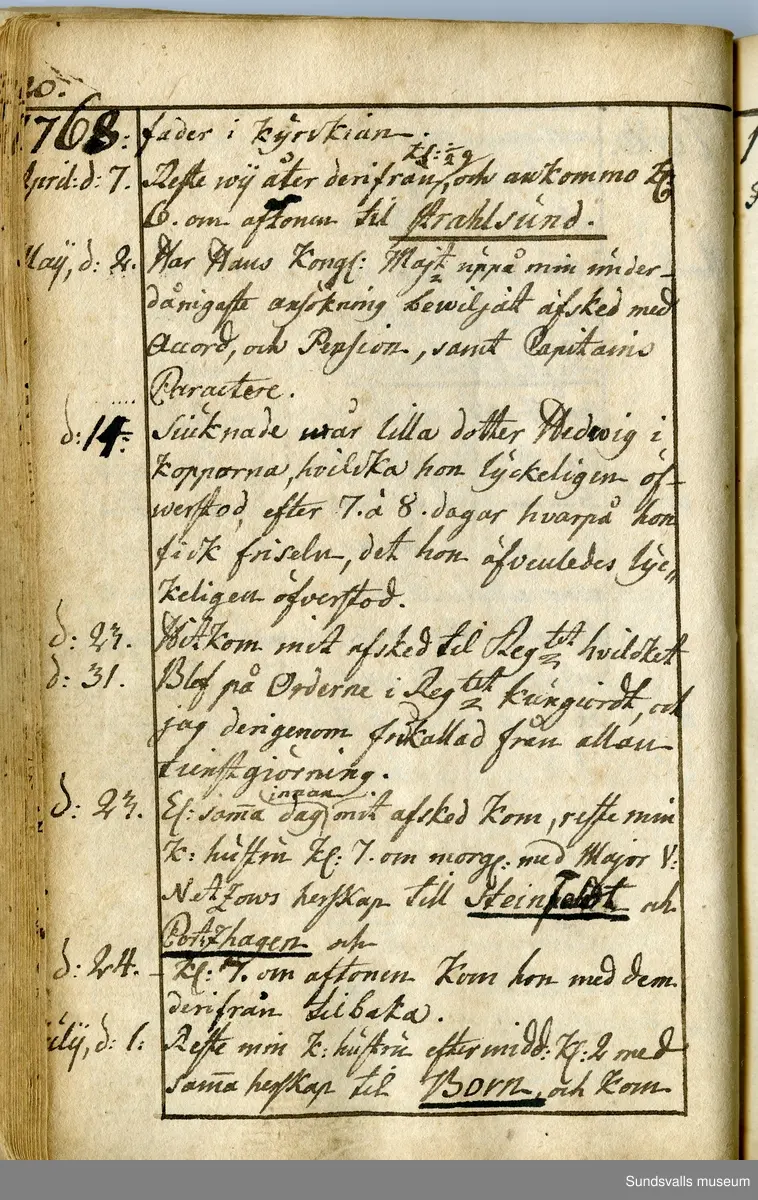 20.
1768: fader i Kyrckian.
April: d: 7. Reste wij åter derifrån, Kl: ½ 9 och ankommo Kl:
6. om aftonen til Strahlsund.
Maij, d: 2. Har Hans Kongl: Majt uppå min under-
dånigaste ansökning bewiljat afsked med
Accord, och Pension, samt Capitains
Caractere.
d: 14. Siucknade wår lilla dotter Hedwig i
Kopporna, hvilcka hon lyckeligen öf-
werstod, efter 7. à 8. dagar hvarpå hon
fick friseln, det hon äfvenledes lyc-
keligen öfverstod.
d: 23. Hitkom mit afsked til Regtet hvilcket
d: 31. Blef på Orderne i Regtet kungiordt, och
jag derigenom frikallad från allan
tienstgiörning.
d: 23. El: samma dag innan mit afsked Kom, reste min
K: hustru Kl: 7. om morg: med Major V:
Netzows herskap till Steinfeldt och
Portzhagen och
d: 24. - Kl: 7. om aftonen Kom hon med dem
derifrån tilbaka.
Julij, d: 1: Reste min K: hustru eftermidd: Kl: 2 med
samma herskap til Born, och Kom
Sundsvalls museum